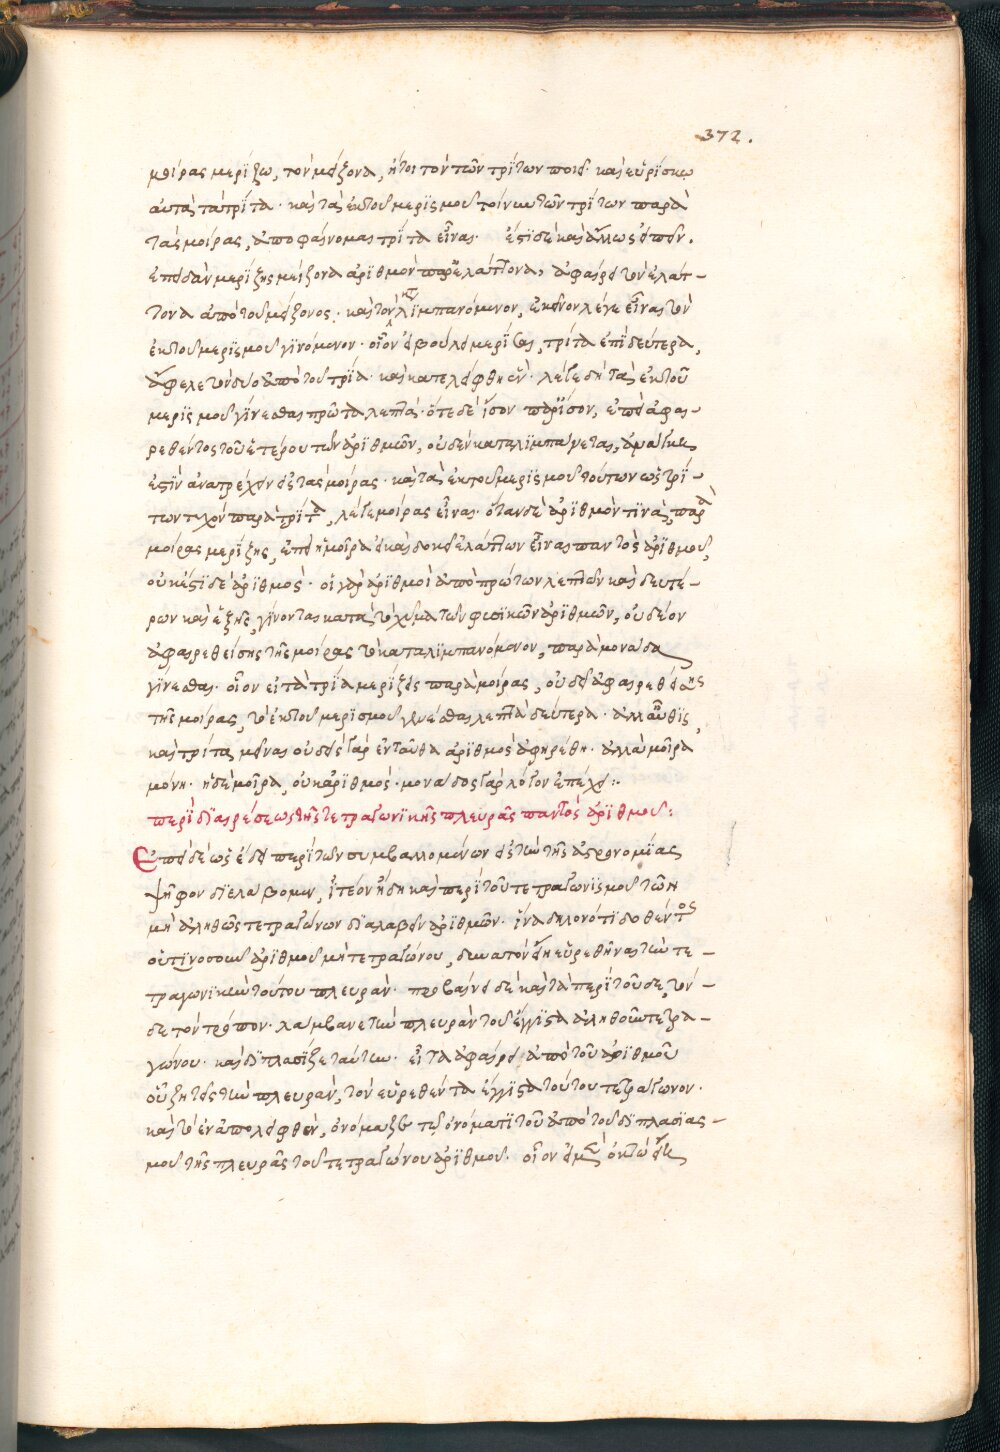 372.
μοίρας μερίζω, τὸν μείζονα, ἤτοι τὸν τῶν τρίτων ποιεῖ· καὶ εὑρίσκω
αὐτὰ τὰ τρίτα· καὶ τὰ ἐκ τοῦ μερισμοῦ τοίνυν τῶν τρίτων παρὰ
τὰς μοίρας, ἀποφαίνομαι τρίτα εἶναι. ἔτι δὲ καὶ ἄλλως εἰπεῖν.
ἐπειδὰν μερίζῃς μείζονα ἀριθμὸν παρ' ἐλάττονα, ἀφαίρει τὸν ἐλάτ-
τονα ἀπὸ τοῦ μείζονος· καὶ τὸν λιμπανόμενον, ἐκεῖνον λέγε εἶναι τὸν
ἐκ τοῦ μερισμοῦ γινόμενον· οἷον εἰ βούλει μερίσαι, τρίτα ἐπὶ δεύτερα,
ἄφελε τὸν δύο ἀπὸ τοῦ τρία· καὶ κατελείφθη ἕν· λέγε δὴ τὰ ἐκ τοῦ
μερισμοῦ γίνεσθαι πρῶτα λεπτά· ὅτε δὲ ἴσον παρ' ἴσον, ἐπεὶ ἀφαι-
ρεθέντος τοῦ ἑτέρου τῶν ἀριθμῶν, οὐδὲν καταλιμπάνεται,
ἐστὶν ἀνατρέχειν εἰς τὰς μοίρας· καὶ τὰ ἐκ τοῦ μερισμοῦ τούτων ὡς τρί-
των τυχὸν παρὰ τρίτα, λέγε μοίρας εἶναι· ὅταν δὲ ἀριθμόν τινα, παρὰ
μοίρας μερίζῃς, ἐπεὶ ἡ μοῖρα εἰ καὶ δοκεῖ ἐλάττων εἶναι παντὸς ἀριθμοῦ,
οὐκ ἔστι δὲ ἀριθμός· οἱ γὰρ ἀριθμοὶ ἀπὸ πρώτων λεπτῶν καὶ δευτέ-
ρων καὶ ἑξῆς, γίνονται κατὰ τὸ χύμα τῶν φυσικῶν ἀριθμῶν, οὐ δέον
ἀφαιρεθείσης τῆς μοίρας τὸ καταλιμπανόμενον, παρὰ μονάδα
γίνεσθαι· οἷον εἰ τὰ τρία μερίζεις παρὰ μοίρας, οὐ δεῖ ἀφαιρεθείσης
τῆς μοίρας, τὸ ἐκ τοῦ μερισμοῦ γενέσθαι λεπτὰ δεύτερα· ἀλλ' αὖθις,
καὶ τρίτα μεῖναι οὐδεὶς γὰρ ἐνταῦθα ἀριθμὸς ἀφῃρέθη· ἀλλὰ μοῖρα
μόνη· ἡ δὲ μοῖρα, οὐκ ἀριθμός· μονάδος γὰρ λόγον ἐπέχει:·
περὶ διαιρέσεως τῆς τετραγωνικῆς πλευρᾶς παντὸς ἀριθμοῦ:
Ἐπεὶ δὲ ὡς ἔδει περὶ τῶν συμβαλλομένων εἰς τὴν τῆς ἀστρονομίας
ψῆφον διελάβομεν, ἰτέον ἤδη καὶ περὶ τοῦ τετραγωνισμοῦ τῶν
μὴ ἀληθῶς τετραγώνων διαλαβεῖν ἀριθμῶν· ἵνα δηλονότι δοθέντος
οὑτινοσοῦν ἀριθμοῦ μὴ τετραγώνου, δυνατὸν εἴη εὑρεθῆναι τὴν τε-
τραγωνικὴν τούτου πλευράν· προβαίνει δὲ καὶ τὰ περὶ τοῦδε, τόν-
δε τὸν τρόπον· λάμβανε τὴν πλευρὰν τοῦ ἔγγιστα ἀληθοῦς τετρα-
γώνου· καὶ διπλασίζε ταύτην· εἶτα ἀφαίρει ἀπὸ τοῦ ἀριθμοῦ
οὗ ζητεῖς τὴν πλευράν, τὸν εὑρεθέντα ἔγγιστα τούτου τετράγωνον·
καὶ τὸ ἐναπολειφθέν, ὀνόμαζε τῷ ὀνόματι τοῦ ἀπὸ τοῦ διπλασιασ-
μοῦ τῆς πλευρᾶς τοῦ τετραγώνου ἀριθμοῦ· οἷον